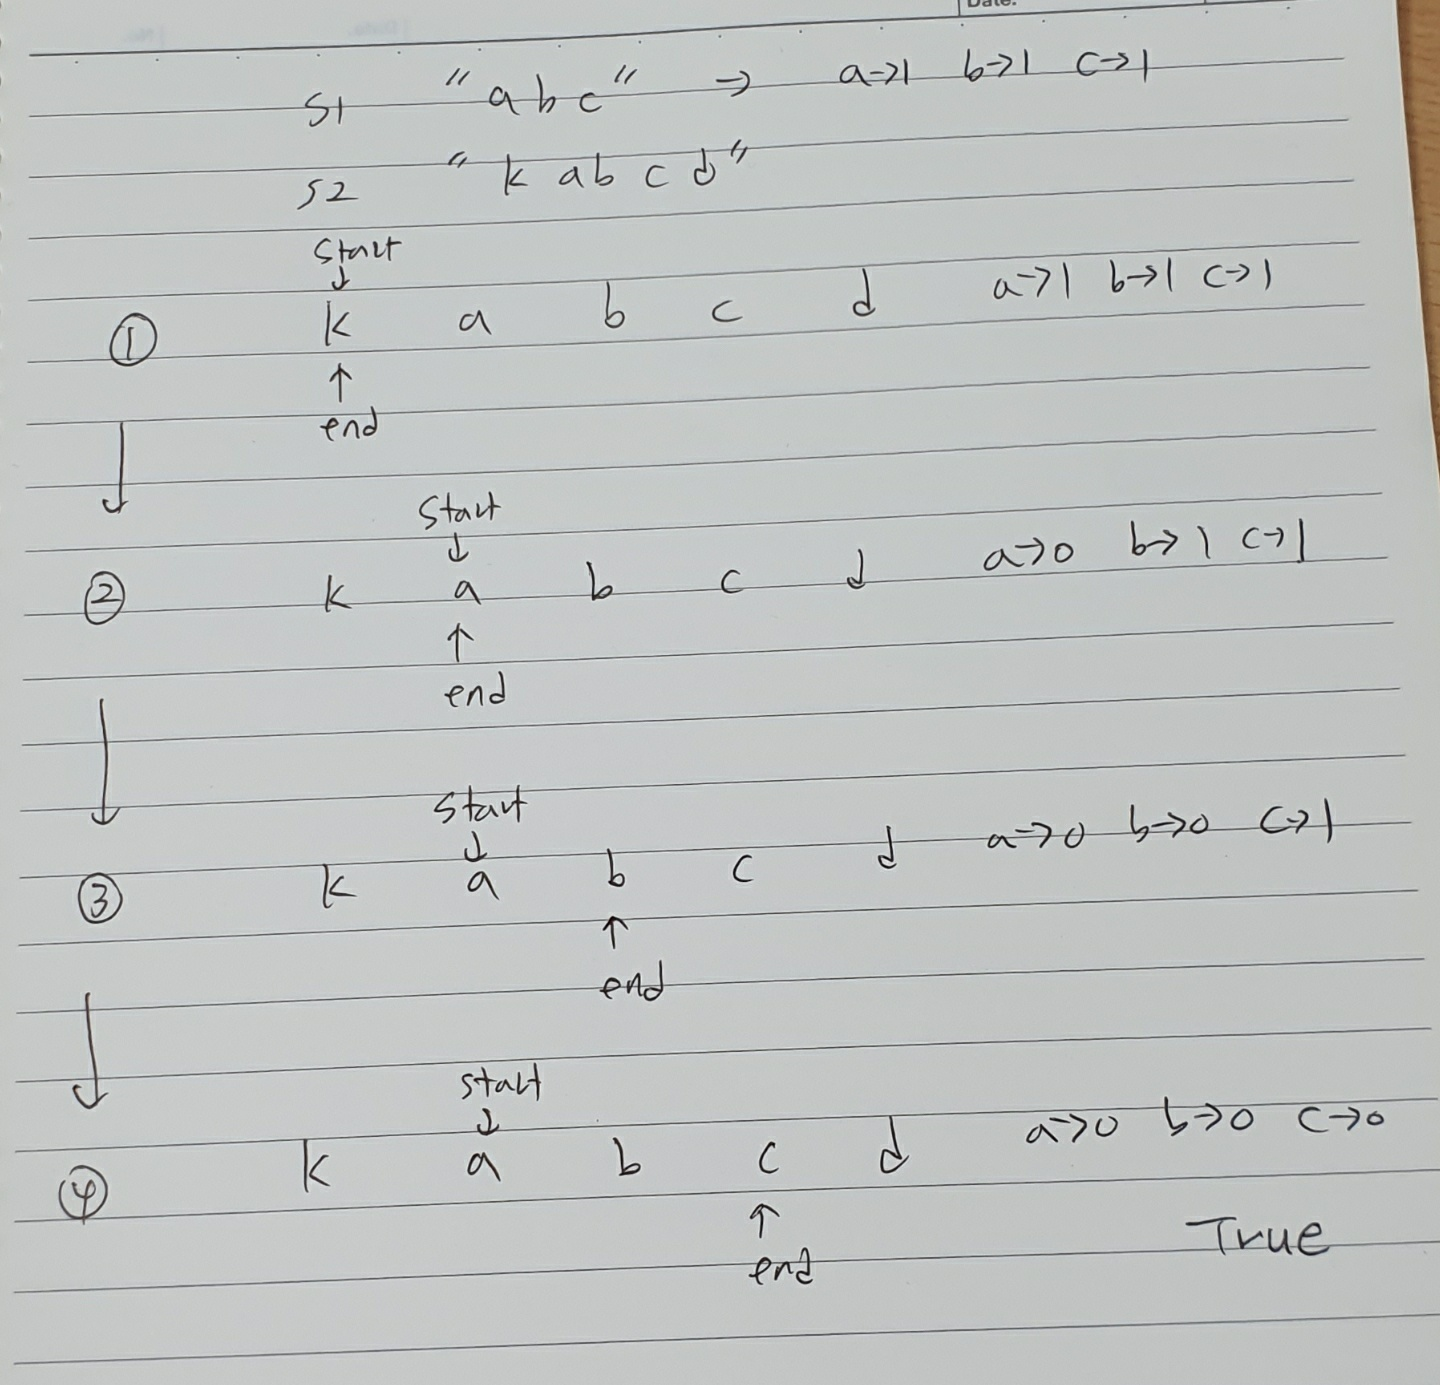 Date.
S1 "abc" → a→1 b→1 c→1
S2 "kabcd"
Start
↓
① k a b c d a→1 b→1 c→1
↑
end
↓
Start
↓
② k a b c d a→0 b→1 c→1
↑
end
↓
Start
↓
③ k a b c d a→0 b→0 c→1
↑
end
↓
start
↓
④ k a b c d a→0 b→0 c→0
↑
True
end